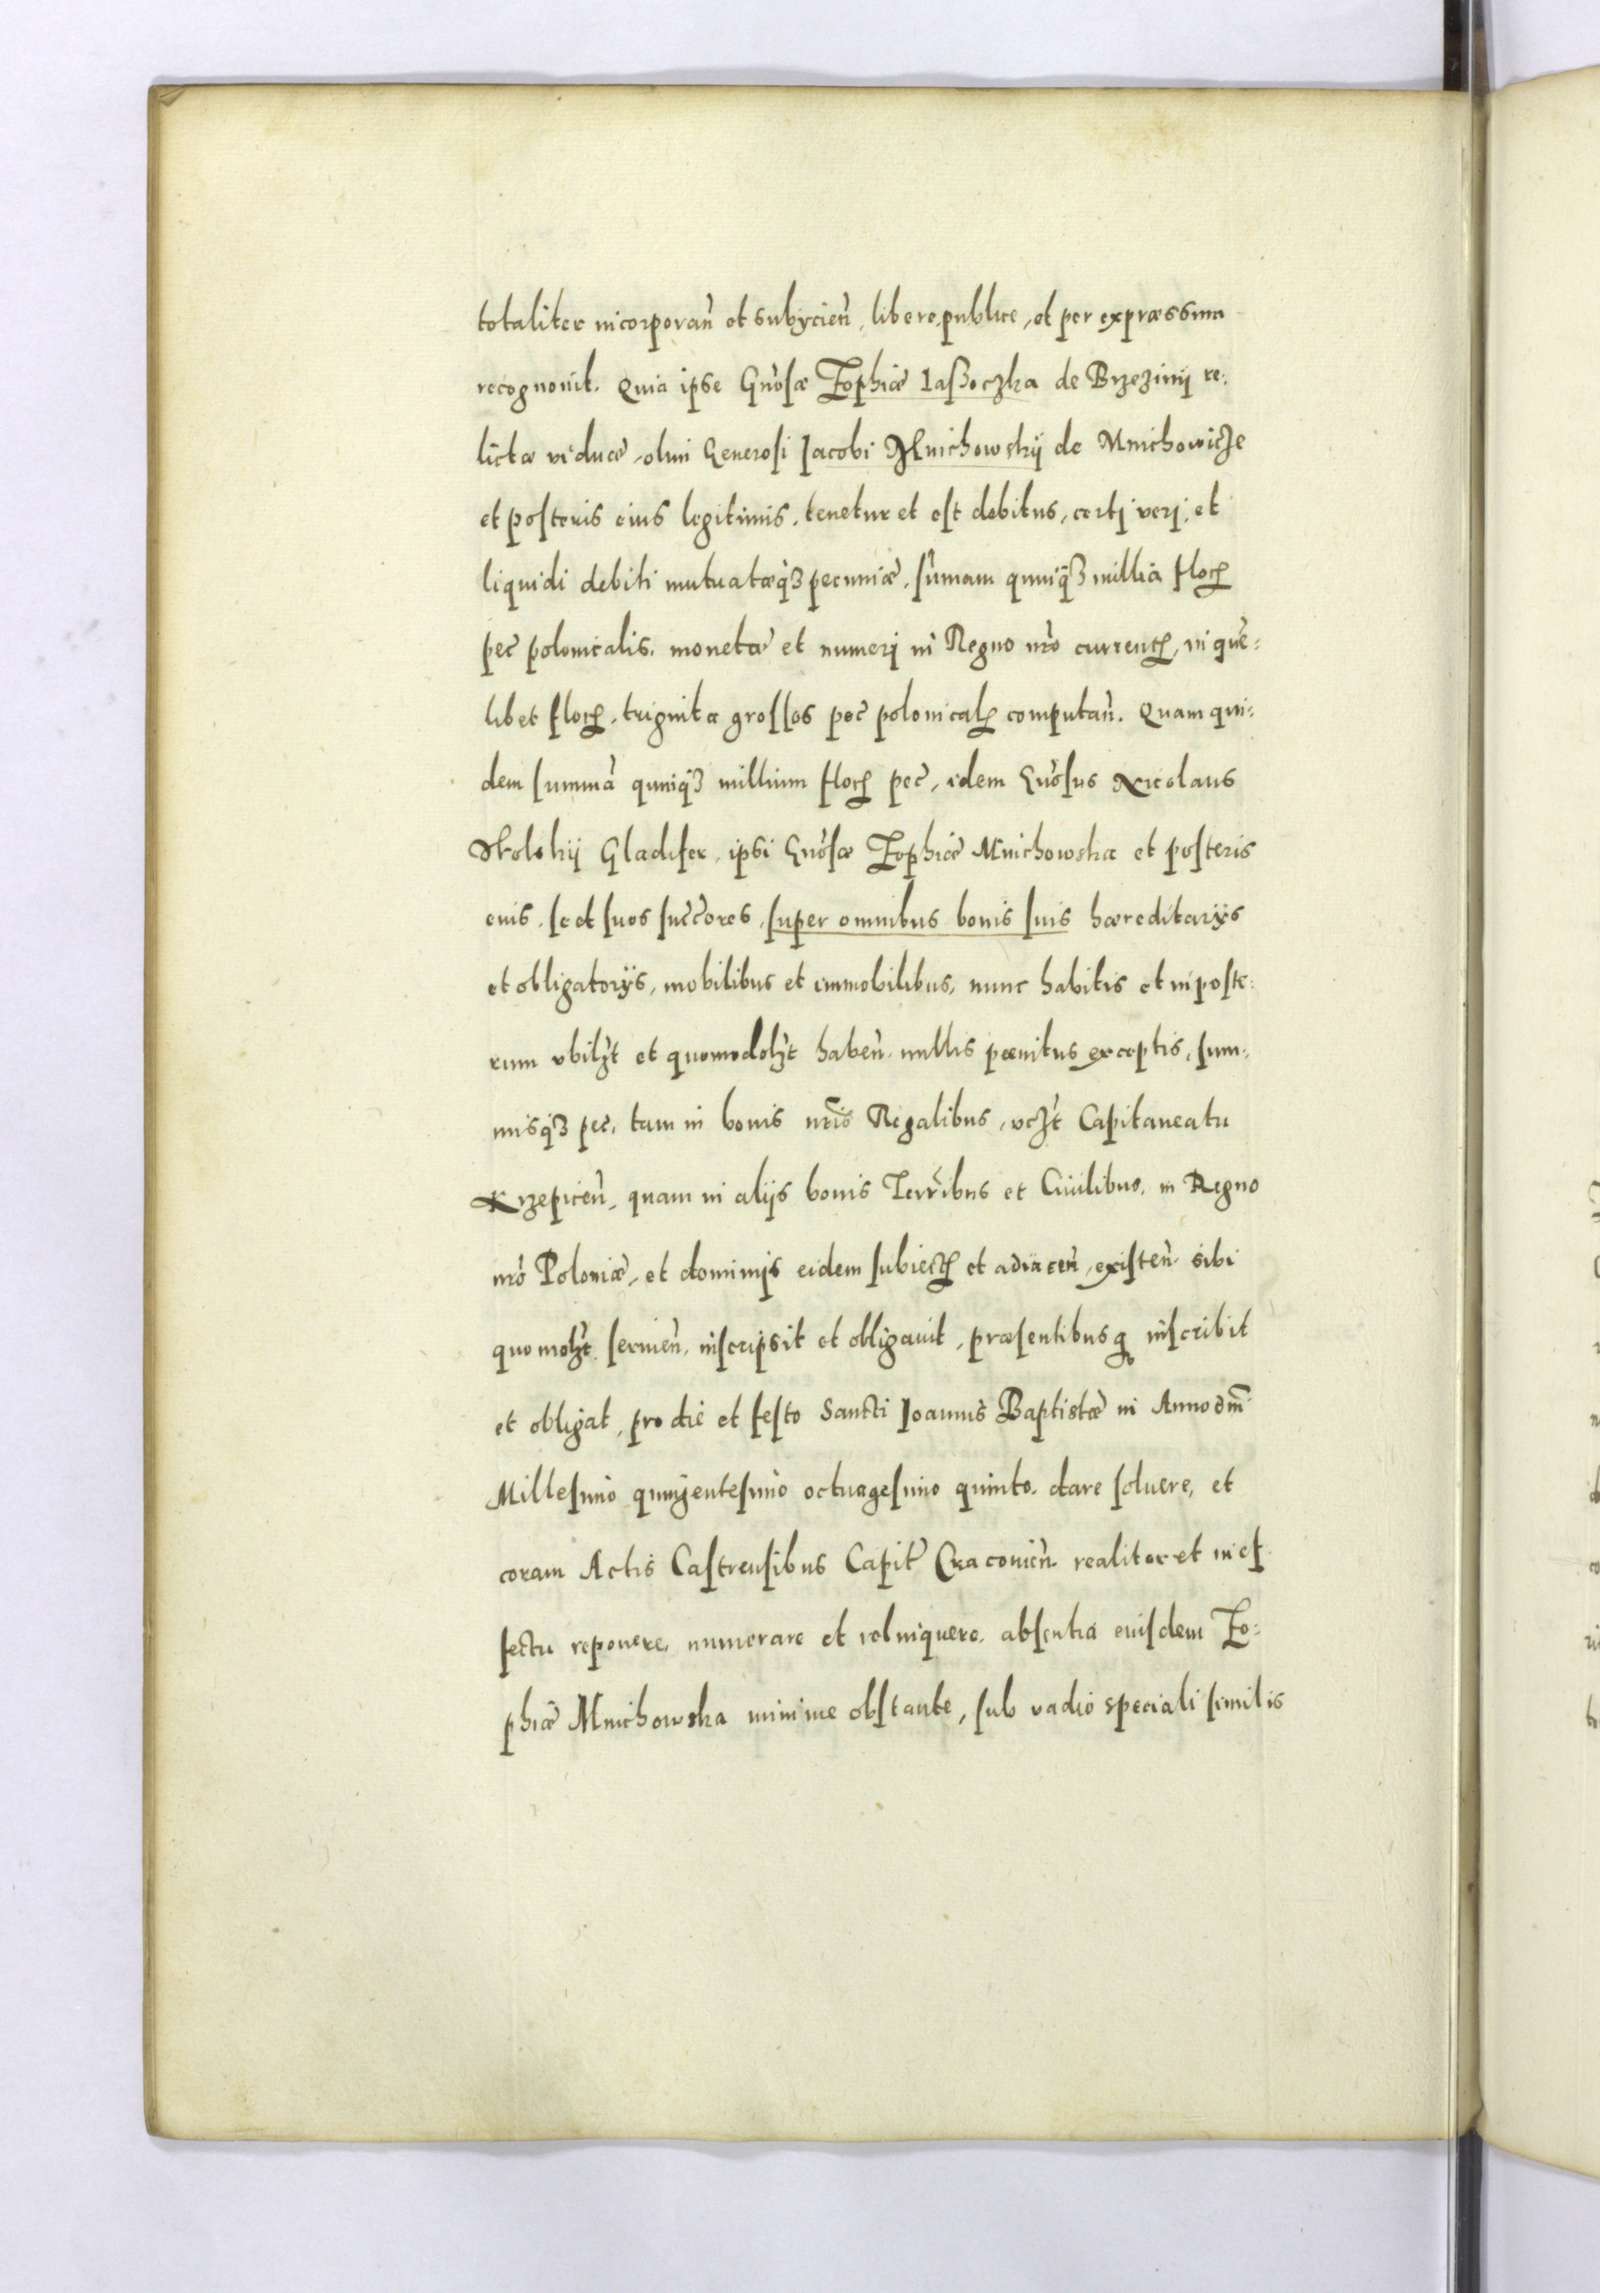 totaliter incorporan̄ et subycien̄, libere, publice, et per expraessum
recognovit. Quia ipse Gn̄osæ Zophiæ Iaßoczka de Brzezinij re:
lictæ viduæ, olim Generosi Iacobi Mnichowskij de Mnichowicze
et posteris eius legitimis, tenetur et est debitus, certi veri, et
liquidi debiti mutuatæq3 pecuniæ, sum̄am quinq3 millia floꝝ
pec̄ polonicalis, monetæ et numeri in Regno nr̄o currentꝭ, in que:
libet floꝝ, triginta grossos pec̄ polonicalꝭ computan̄. Quam qui:
dem summā quinq3 millium floꝝ pec̄, idem Gn̄osus Nicolaus
Wolskij Gladifer, ipsi Gn̄osæ Zophiæ Mnichowska et posteris
euis, se et suos succ̄ores, super omnibus bonis suis hæreditarÿs
et obligatorÿs, mobilibus et immobilibus, nunc habitis et in poste:
rum vbilꝫt et quomodolꝫt haben̄, nullis pænitus exceptis, sum:
misq3 pec, tam in bonis nr̄is Regalibus, vcꝫt Capitaneatu
Krzepicen̄, quam in alijs bonis Terr̄ibus et Ciuilibus, in Regno
nr̄o Poloniæ, et dominijs eidem subiectꝭ et adiacen̄, existen̄ sibi
quomolꝫt seruien̄, inscripsit et obligauit, præsentibusq inscribit
et obligat, pro die et festo Sancti Ioannis Baptistæ in Anno dm̄
Millesimo quingentesimo octuagesimo quinto, dare soluere, et
coram Actis Castrensibus Capit̄ Cracouien̄ realiter et in ef
fectu reponere, numerare et relinquere, absentia eiusdem Zo:
phiæ Mnichowska minime obstante, sub vadio speciali similis